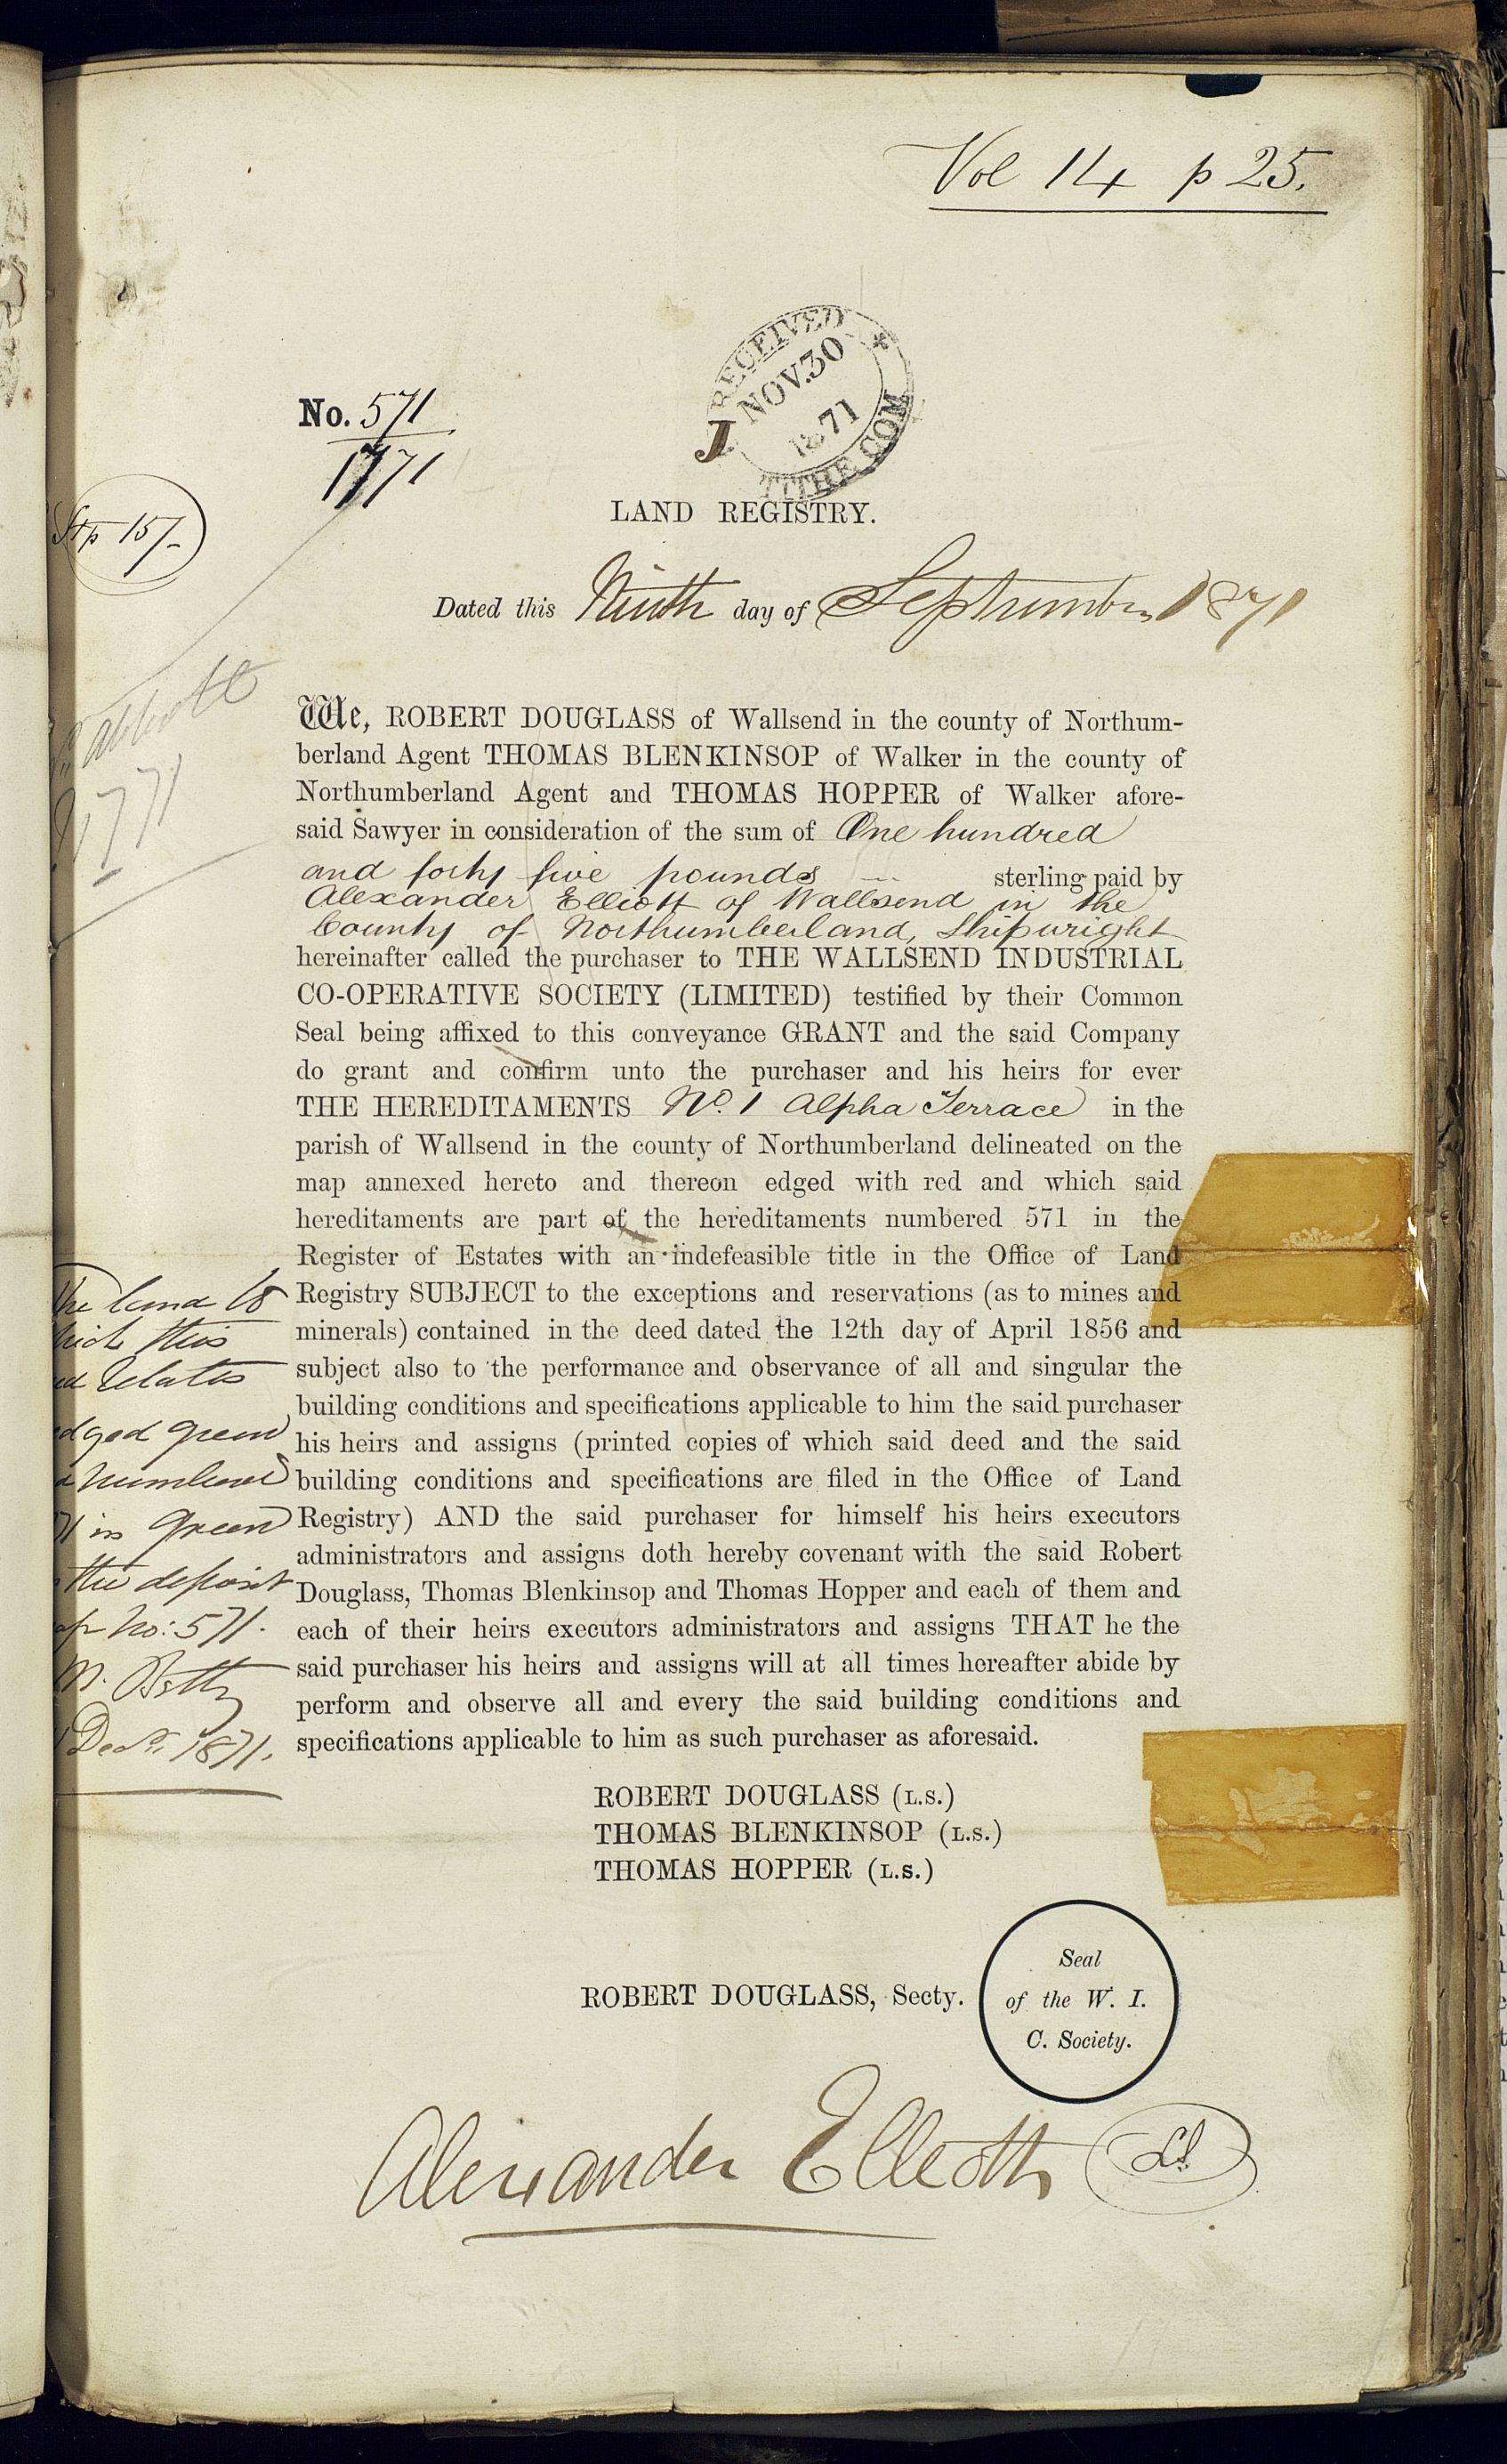 Vol 14 p 25.
RECEIVED
NOV. 30
1871
TITHE COM
J
No. 571
1771
Stp 15/-
LAND REGISTRY.
Dated this Ninth day of September 1871
1771
We, ROBERT DOUGLASS of Wallsend in the county of Northum-
berland Agent THOMAS BLENKINSOP of Walker in the county of
Northumberland Agent and THOMAS HOPPER of Walker afore-
said Sawyer in consideration of the sum of One hundred
and forty five pounds sterling paid by
Alexander Elliott of Wallsend in the
County of Northumberland, Shipwright
hereinafter called the purchaser to THE WALLSEND INDUSTRIAL
CO-OPERATIVE SOCIETY (LIMITED) testified by their Common
Seal being affixed to this conveyance GRANT and the said Company
do grant and confirm unto the purchaser and his heirs for ever
THE HEREDITAMENTS No. 1 Alpha Terrace in the
parish of Wallsend in the county of Northumberland delineated on the
map annexed hereto and thereon edged with red and which said
hereditaments are part of the hereditaments numbered 571 in the
Register of Estates with an indefeasible title in the Office of Land
Registry SUBJECT to the exceptions and reservations (as to mines and
minerals) contained in the deed dated the 12th day of April 1856 and
subject also to the performance and observance of all and singular the
building conditions and specifications applicable to him the said purchaser
his heirs and assigns (printed copies of which said deed and the said
building conditions and specifications are filed in the Office of Land
Registry) AND the said purchaser for himself his heirs executors
administrators and assigns doth hereby covenant with the said Robert
Douglass, Thomas Blenkinsop and Thomas Hopper and each of them and
each of their heirs executors administrators and assigns THAT he the
said purchaser his heirs and assigns will at all times hereafter abide by
perform and observe all and every the said building conditions and
specifications applicable to him as such purchaser as aforesaid.
The land to
hich this
ed relates
dged green
numbered
71 in green
the deposit
ap No: 571.
Decr. 1871.
ROBERT DOUGLASS (L.S.)
THOMAS BLENKINSOP (L.S.)
THOMAS HOPPER (L.S.)
ROBERT DOUGLASS, Secty.
Seal
of the W. I.
C. Society.
Alexander Elliott LS